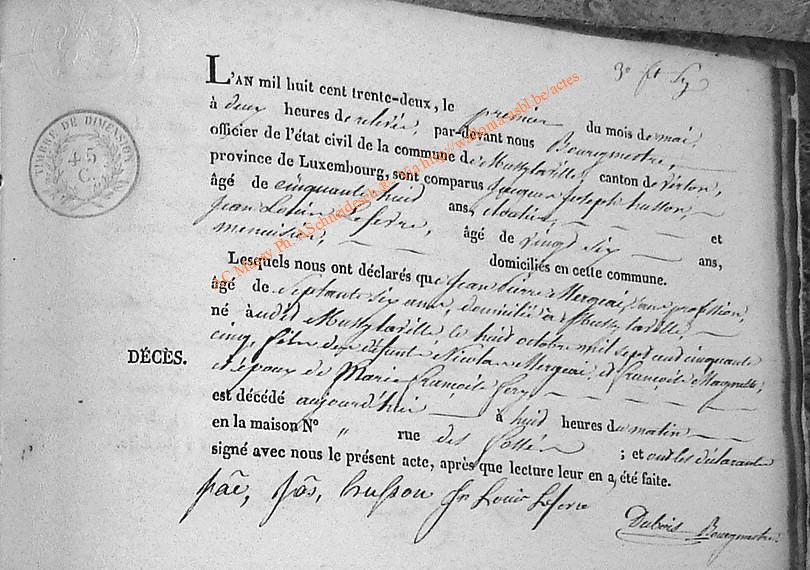 TIMBRE DE DIMENSION
45
C.
L'AN mil huit cent trente-deux, le premier du mois de mai,
à deux heures de relevée, par-devant nous Bourgmestre,
officier de l'état civil de la commune de Mussylaville, canton de Virton,
province de Luxembourg, sont comparus Jacques Joseph husson,
âgé de cinquante huid ans, et
Jean Louis Lefevre, âgé de vingt six ans,
menuisier, domiciliés en cette commune.
Lesquels nous ont déclarés que Jean Pierre Mergeai, sans profession,
âgé de septante six ans, domicilié à Mussylaville,
né audit Mussylaville le huid octobre mil sept cent cinquante
DÉCÈS.
cinq, fils des défunts Nicolas Mergeai, et françoise
et époux de Marie françoise
est décédé aujourd'hui à huid heures du matin
en la maison N° " rue des fossés ; et ont les déclarants
signé avec nous le présent acte, après que lecture leur en a, été faite.
husson Jn Louis Lefevre
Dubois Bourgmestre
AC Mussy Ph. ASchneidesch R. Via http://wallonia-asbl.be/actes